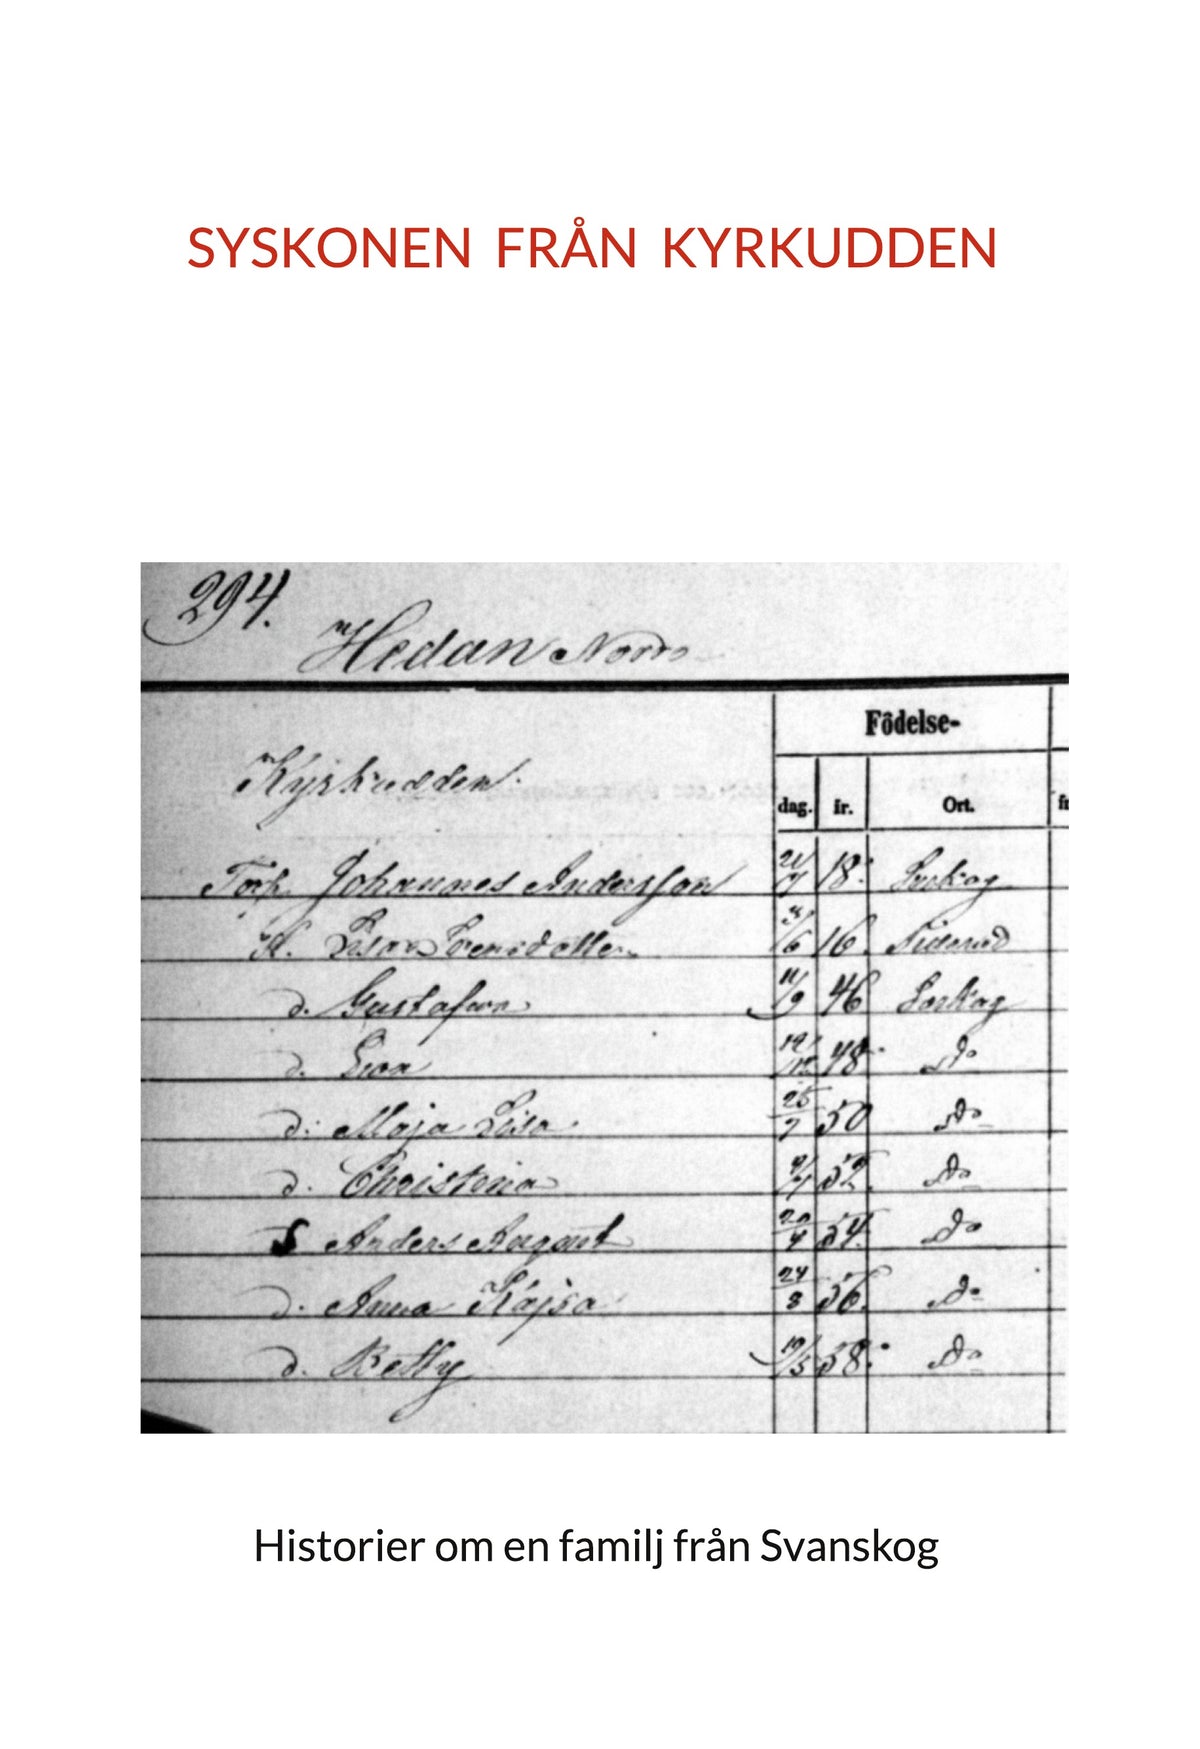 SYSKONEN FRÅN KYRKUDDEN
294.
Hedan Norra
Födelse-
Kyrkudden.
dag. år. Ort.
Torp. Johannes Andersson 21/7 18.
H. Lisa 16.
d. Gustafva 11/9 46
d. 48 do
d. Maja Lisa 25/7 50 do
d. Christina 52. do
S Anders August 20/4 54. do
d. Anna Kajsa 24/8 56. do
d. Betty 19/5 58. do
Historier om en familj från Svanskog